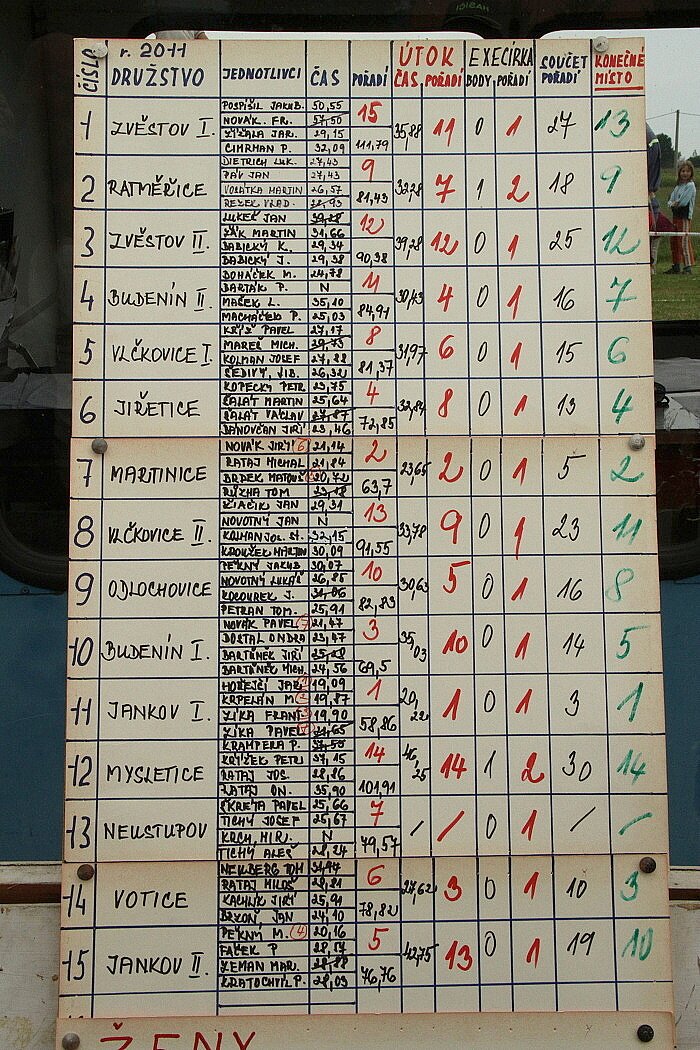 ČÍSLO r. 2011 DRUŽSTVO JEDNOTLIVCI ČAS POŘADÍ ÚTOK ČAS, POŘADÍ EXECÍRKA BODY, POŘADÍ SOUČET POŘADÍ KONEČNÉ MÍSTO
1 ZVĚSTOV I. 15 35,88 11 0 1 27 13
POSPÍŠIL JAKUB. 50,55
NOVÁK. FR. 57,50
ZÍŽALA JAR. 29,15
CIHRMAN P. 32,09 111,79
2 RATMĚŘICE 9 32,28 7 1 2 18 9
DIETRICH LUK. 27,43
PÁV JAN 27,43
VOLÁTKA MARTIN 26,57 81,43
REZEK VLAD. 28,93
3 ZVĚSTOV II. 12 39,28 12 0 1 25 12
LUKEŠ JAN
ŽÁK MARTIN 31,66
BABICKÝ K. 29,34
BABICKÝ J. 29,38 90,38
4 BUDENÍN II 11 30,43 4 0 1 16 7
DOHÁČEK M. 24,78
BARTÁK P. N
MAŠEK L. 35,10
MACHÁČEK P. 25,03 84,91
5 VLČKOVICE I. 8 31,97 6 0 1 15 6
KŘÍŽ PAVEL 27,17
MAREŠ MICH. 29,73
KOLMAN JOSEF 27,88
ŠEDIVÝ, LIB. 26,32 81,37
6 JIŘETICE 4 32,84 8 0 1 13 4
KOPECKÝ PETR 23,75
ŠALÁT MARTIN 25,64
ŠALÁT VÁCLAV 27,87
DANOVČAN JIŘÍ 23,46 72,85
7 MARTINICE 2 23,65 2 0 1 5 2
NOVÁK JIŘÍ (6) 21,14
RATAJ MICHAL 21,84
BRDEK MATOUŠ 20,72
RŮŽHA TOM 23,18 63,7
8 VLČKOVICE II. 13 33,78 9 0 1 23 11
KLAČÍK JAN 29,31
NOVOTNÝ JAN N
KOLMAN JOS. ST. 32,15
KROUŽEK MARTIN 30,09 91,55
9 ODLOCHOVICE 10 30,63 5 0 1 16 8
PĚKNÝ JAKUB 30,07
NOVOTNÝ LUKÁŠ 26,85
KOKOUREK J. 31,06
PETRAN TOM. 25,91 82,83
10 BUDENÍN I. 3 35,03 10 0 1 14 5
NOVÁK PAVEL (7) 21,47
DOSTAL ONDRA 23,47
BARTŮNĚK JIŘÍ 25,28
BARTŮNĚK MICH. 24,56 69,5
11 JANKOV I. 1 20,22 1 0 1 3 1
HOŘEJČÍ JAR 19,09
KRPELÁN M 19,87
ZÍKA FRANT 19,90
ZÍKA PAVEL 21,65 58,86
12 MYSLETICE 14 46,25 14 1 2 30 14
KRAMPERA P. 37,50
KŘÍŽEK PETR 37,15
RATAJ JOS. 28,86
RATAJ ON. 35,90 101,91
13 NEUSTUPOV 7 / / 0 1 / /
ŠKRETA PAVEL 25,66
TICHÝ JOSEF 25,67
KRCH, MIR. N
TICHÝ ALEŠ 28,24 79,57
14 VOTICE 6 27,62 3 0 1 10 3
NEUBERG TOM 31,94
RATAJ MILOŠ 28,81
KACHLÍK JIŘÍ 25,91
BRZOŇ JAN 24,10 78,82
15 JANKOV II. 5 42,75 13 0 1 19 10
PĚKNÝ M. (4) 20,16
FAČEK P 28,57
ZEMAN MAR. 28,88
KRATOCHVÍL P. 28,03 76,76
ŽENY